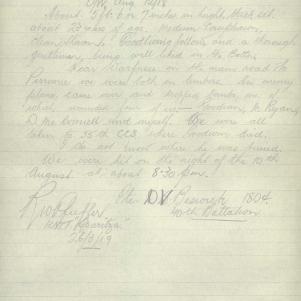 D/W Aug 1918
About 5 ft 6 or 7 inches in height, thick set
about 22 years of age. Medium complexion,
clean shaven. Goodliving fellow, and a thorough
gentleman, being well liked in the Battn.
Near Warfusee on the main road to
Peronne we were both in limbers. An enemy
plane came over and dropped bombs one of
which wounded four of us - Goodwin, M. Ryan,
D. McConnell and myself. We were all
taken to 35th CCS where Goodwin died.
I do not know where he was buried.
We were hit on the night of the 10th
August at about 8-30 p.m.
Pte. D V Beswick 1804.
40th Battalion
R W Pfeiffer
HMT "Karitja"
26/3/19